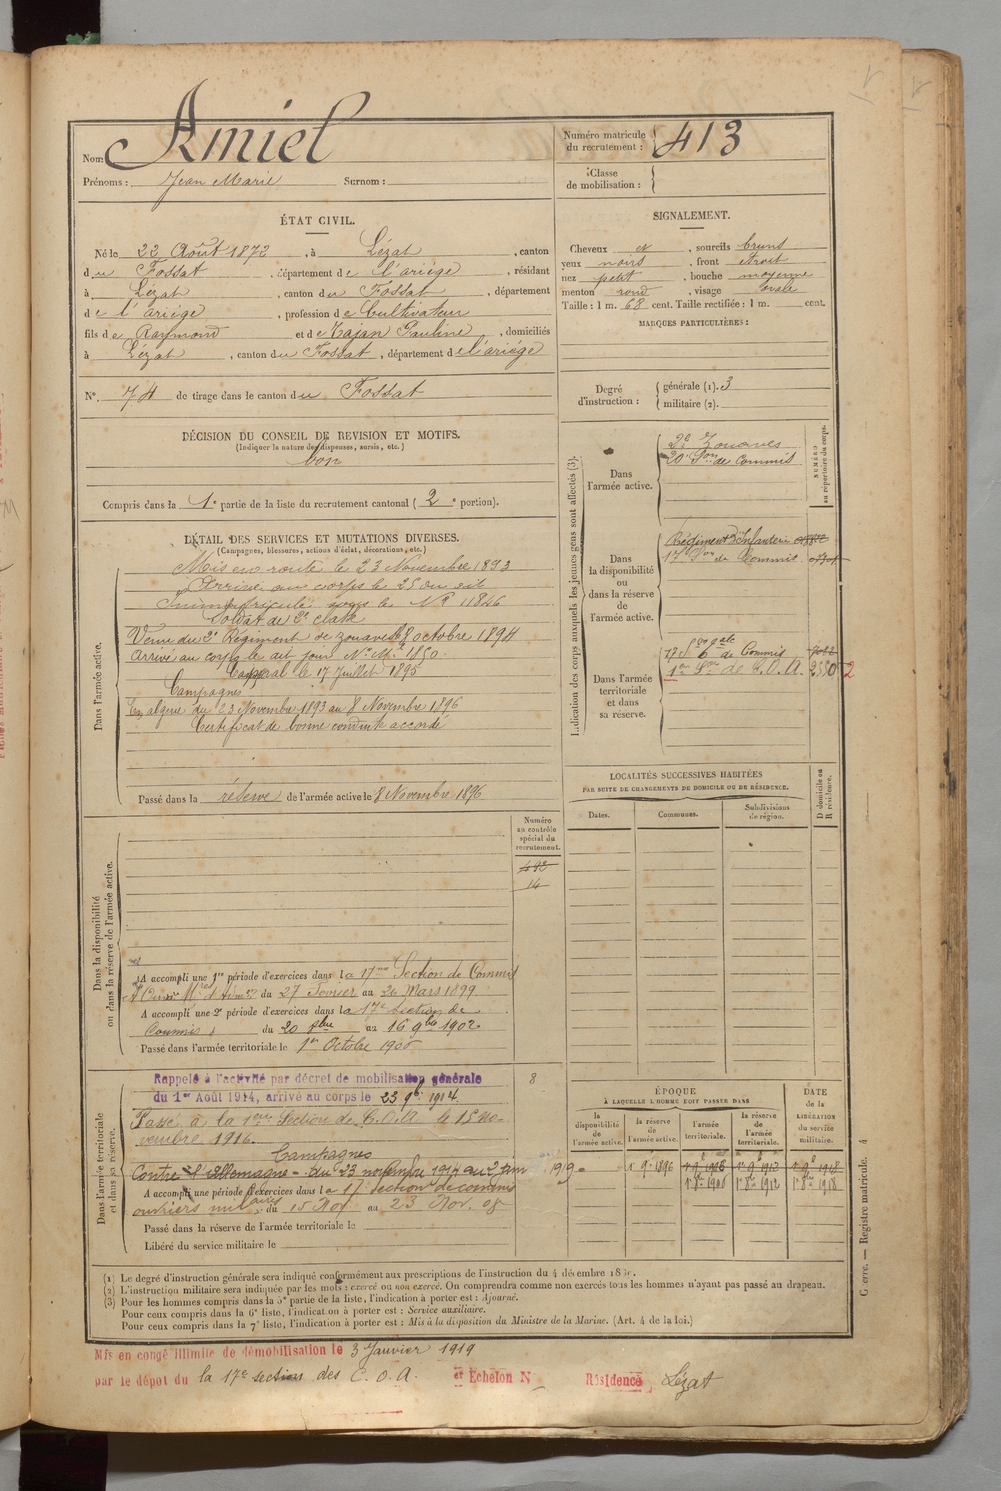 Nom: Amiel
Prénoms: Jean Marie Surnom:
Numéro matricule du recrutement: 413
Classe de mobilisation:
ÉTAT CIVIL.
Né le 22 Août 1872, à Lézat, canton
du Fossat, département de l'ariège, résidant
à Lézat, canton du Fossat, département
de l'ariège, profession de Cultivateur
fils de Raymond et de Tajan Pauline, domiciliés
à Lézat, canton du Fossat, département de l'ariège
N°. 74 de tirage dans le canton du Fossat
SIGNALEMENT.
Cheveux et, sourcils bruns
yeux noirs, front étroit
nez petit, bouche moyenne
menton rond, visage ovale
Taille: 1 m. 68 cent. Taille rectifiée: 1 m. cent.
MARQUES PARTICULIÈRES:
Degré d'instruction: générale (1). 3
militaire (2).
DÉCISION DU CONSEIL DE REVISION ET MOTIFS.
(Indiquer la nature des dispenses, sursis, etc.)
bon
Compris dans la 1e partie de la liste du recrutement cantonal (2e portion).
DÉTAIL DES SERVICES ET MUTATIONS DIVERSES.
(Campagnes, blessures, actions d'éclat, décorations, etc.)
Dans l'armée active.
Mis en route le 23 Novembre 1893
Arrivé au corps le 25 du dit
Immatriculé sous le N° 11846
Soldat de 2e classe
Venu du 2e Régiment de zouaves le 8 octobre 1894
Arrivé au corps le dit jour N° Mle 1850
Caporal le 17 Juillet 1895
Campagnes
En algérie du 23 Novembre 1893 au 8 Novembre 1896
Certificat de bonne conduite accordé
Passé dans la réserve de l'armée active le 8 Novembre 1896
Indication des corps auxquels les jeunes gens sont affectés (3).
NUMÉRO au répertoire du corps.
Dans l'armée active.
2e Zouaves
20e Son de Commis
Dans la disponibilité ou dans la réserve de l'armée active.
Régiment d'Infanterie
17e Son de Commis
Dans l'armée territoriale et dans sa réserve.
17e Son de Commis
1re Son de C.O.A. 2350 2
LOCALITÉS SUCCESSIVES HABITÉES
PAR SUITE DE CHANGEMENTS DE DOMICILE OU DE RÉSIDENCE.
Dates. Communes. Subdivisions de région. D domicile ou R résidence.
Numéro au contrôle spécial du recrutement.
492
14
Dans la disponibilité ou dans la réserve de l'armée active.
A accompli une 1re période d'exercices dans la 17me Section de Commis
du 27 Février au 26 Mars 1899
A accompli une 2e période d'exercices dans la 17e Section de
Commis du 20 8bre au 16 9bre 1902
Passé dans l'armée territoriale le 1er Octobre 1906
Dans l'armée territoriale et dans sa réserve.
Rappelé à l'activité par décret de mobilisation générale 8
du 1er Août 1914, arrivé au corps le 23 9b 1914.
Passé à la 1ere Section de C.O.A. le 15 No-
vembre 1916.
Campagnes
Contre l'Allemagne - du 23 novembre 1914 au 2 jan 1919
A accompli une période d'exercices dans la 17 section de commis
ouvriers milaires du 15 Nov au 23 Nov. 08
Passé dans la réserve de l'armée territoriale le
Libéré du service militaire le
ÉPOQUE
À LAQUELLE L'HOMME DOIT PASSER DANS
DATE de la LIBÉRATION du service militaire.
la disponibilité de l'armée active. la réserve de l'armée active. l'armée territoriale. la réserve de l'armée territoriale.
1r 9b 1896 1r 9b 1906 1r 9b 1912 1r 9b 1918
1r 8bre 1906 1r 8bre 1912 1r 8bre 1918
(1) Le degré d'instruction générale sera indiqué conformément aux prescriptions de l'instruction du 4 décembre 18
(2) L'instruction militaire sera indiquée par les mots: exercé ou non exercé. On comprendra comme non exercés tous les hommes n'ayant pas passé au drapeau.
(3) Pour les hommes compris dans la 5e partie de la liste, l'indication à porter est: Ajourné.
Pour ceux compris dans la 6e liste, l'indication à porter est: Service auxiliaire.
Pour ceux compris dans la 7e liste, l'indication à porter est: Mis à la disposition du Ministre de la Marine. (Art. 4 de la loi.)
Guerre. — Registre matricule. 4
Mis en congé illimité de démobilisation le 3 Janvier 1919
par le dépôt du la 17e section des C.O.A. er Echelon N Résidence Lézat